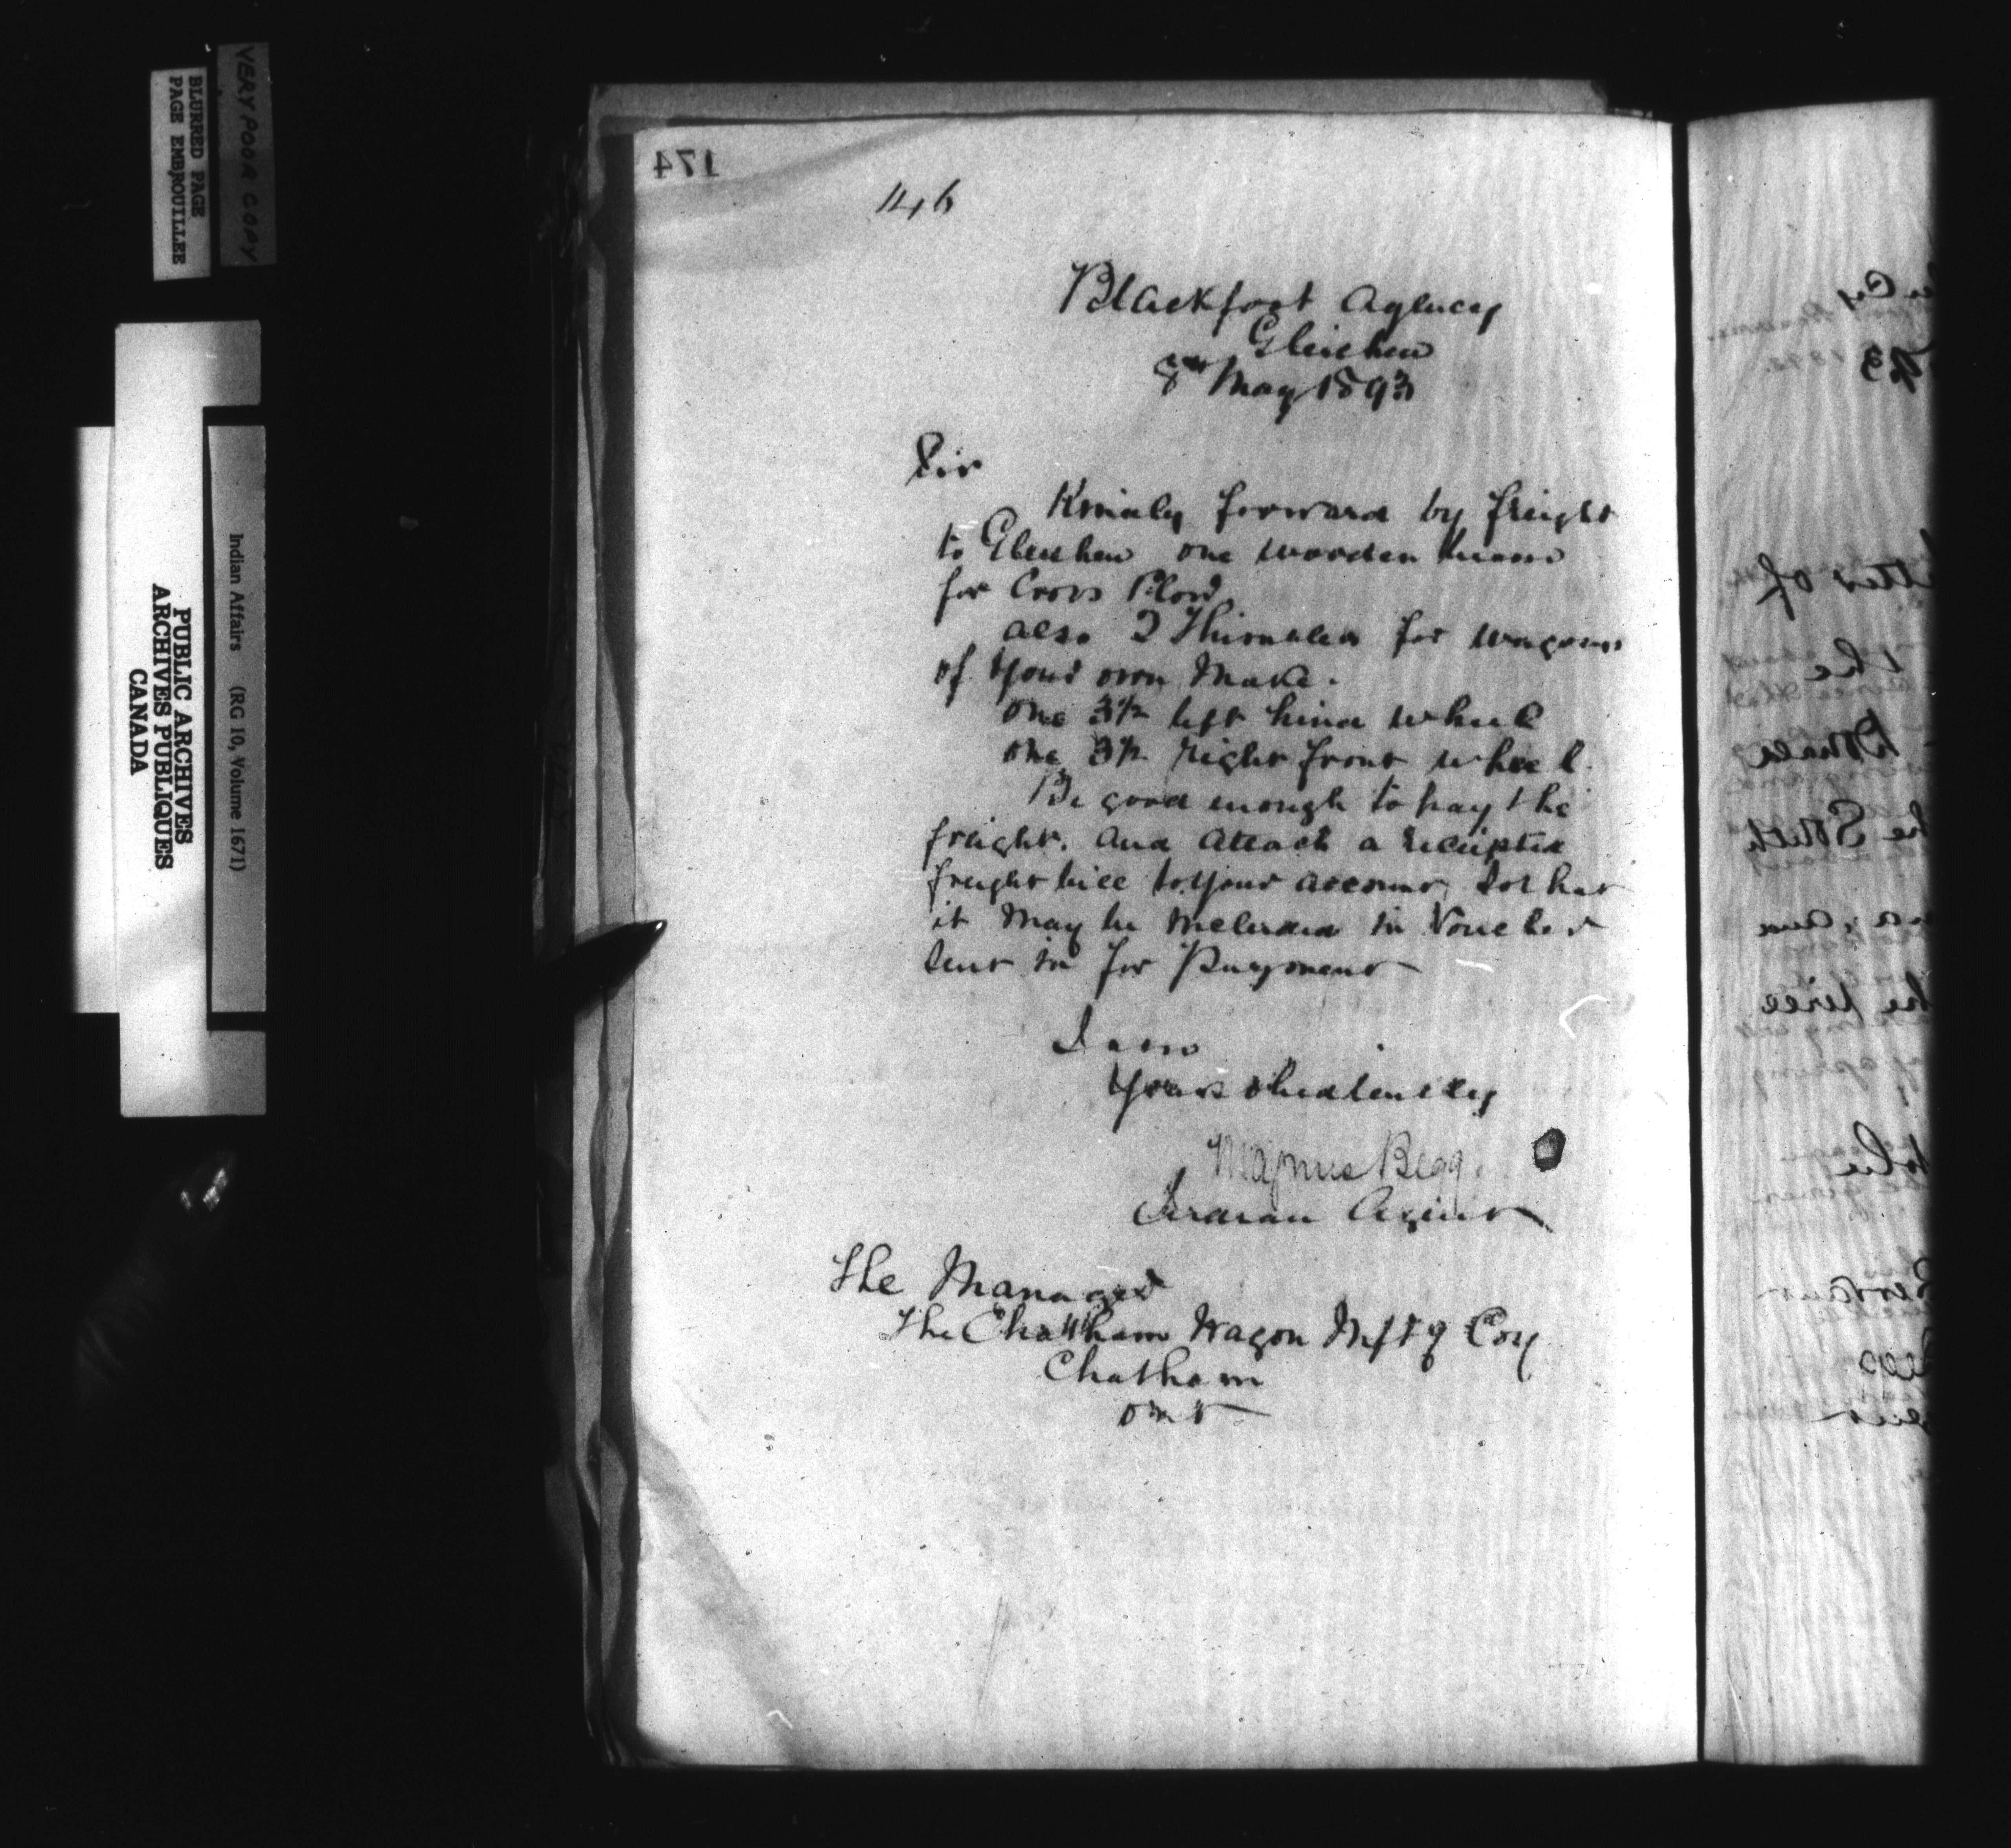 VERY POOR COPY
BLURRED PAGE
PAGE EMBROUILLEE
Indian Affairs (RG 10, Volume 1671)
PUBLIC ARCHIVES
ARCHIVES PUBLIQUES
CANADA
174
146
Blackfoot Agency
Gleichen
8th May 1893
Sir
Kindly forward by freight
to Gleichen one wooden beam
for Cross Plow
also 2 Thimbles for wagons
of your own Make.
one 3½ left hind wheel
one 3½ right front wheel.
Be good enough to pay the
freight. and attach a receipted
freight bill to your account, so that
it may be included in Voucher
sent in for Payment
I am
Yours obediently
Magnus Begg.
Indian Agent
The Manager
The Chatham Wagon Mftg Coy
Chatham
Ont